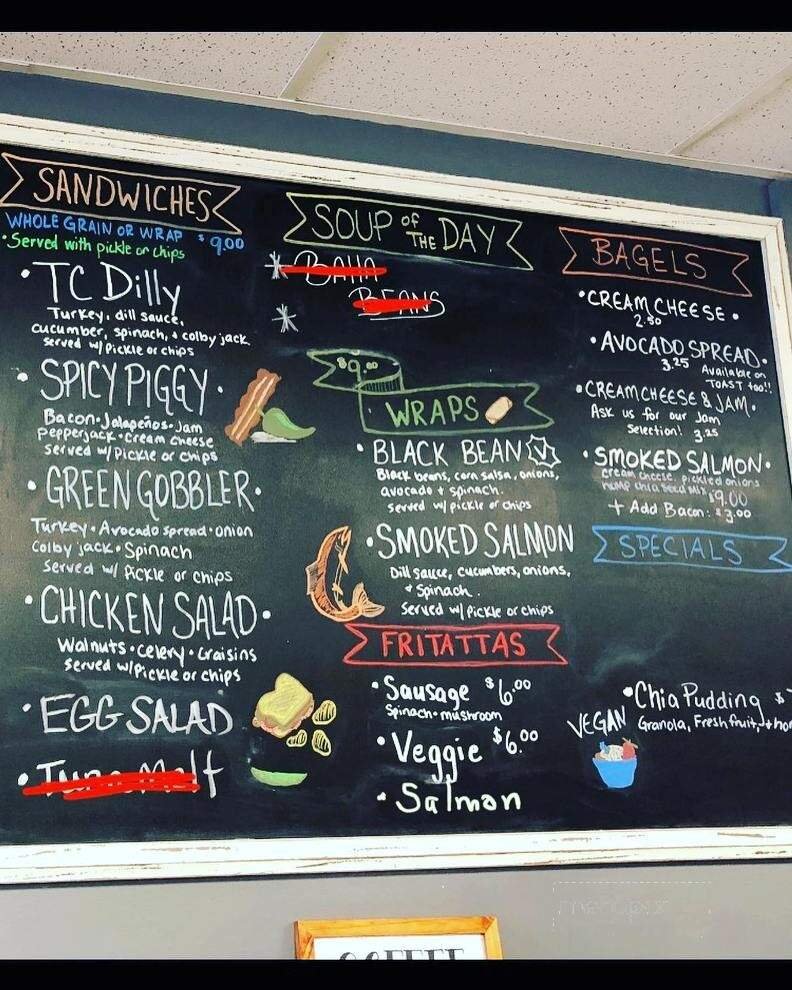 SANDWICHES
WHOLE GRAIN OR WRAP $9.00
•Served with pickle or chips
•TC Dilly
Turkey, dill sauce,
cucumber, spinach, & colby jack
served w/ pickle or chips
•SPICY PIGGY•
Bacon•Jalapeños•Jam
Pepperjack•Cream cheese
served w/ pickle or chips
•GREEN GOBBLER•
Turkey•Avocado spread•onion
Colby jack•Spinach
served w/ pickle or chips
•CHICKEN SALAD•
Walnuts•celery•craisins
served w/pickle or chips
•EGG SALAD
SOUP of THE DAY
BEANS
$9.00
WRAPS
•BLACK BEAN V
Black beans, corn salsa, onions,
avocado + spinach.
served w/ pickle or chips
•SMOKED SALMON
Dill sauce, cucumbers, onions,
+ Spinach.
Served w/ pickle or chips
FRITATTAS
•Sausage $6.00
Spinach•mushroom
•Veggie $6.00
•Salmon
BAGELS
•CREAM CHEESE•
2.50
•AVOCADO SPREAD•
3.25 Available on
TOAST too!!
•CREAM CHEESE & JAM•
Ask us for our Jam
Selection! 3.25
•SMOKED SALMON•
cream cheese, pickled onions
hemp chia seed mix $9.00
+ Add Bacon: $3.00
SPECIALS
•Chia Pudding $
VEGAN Granola, Fresh fruit, + hon
COFFEE
menupix